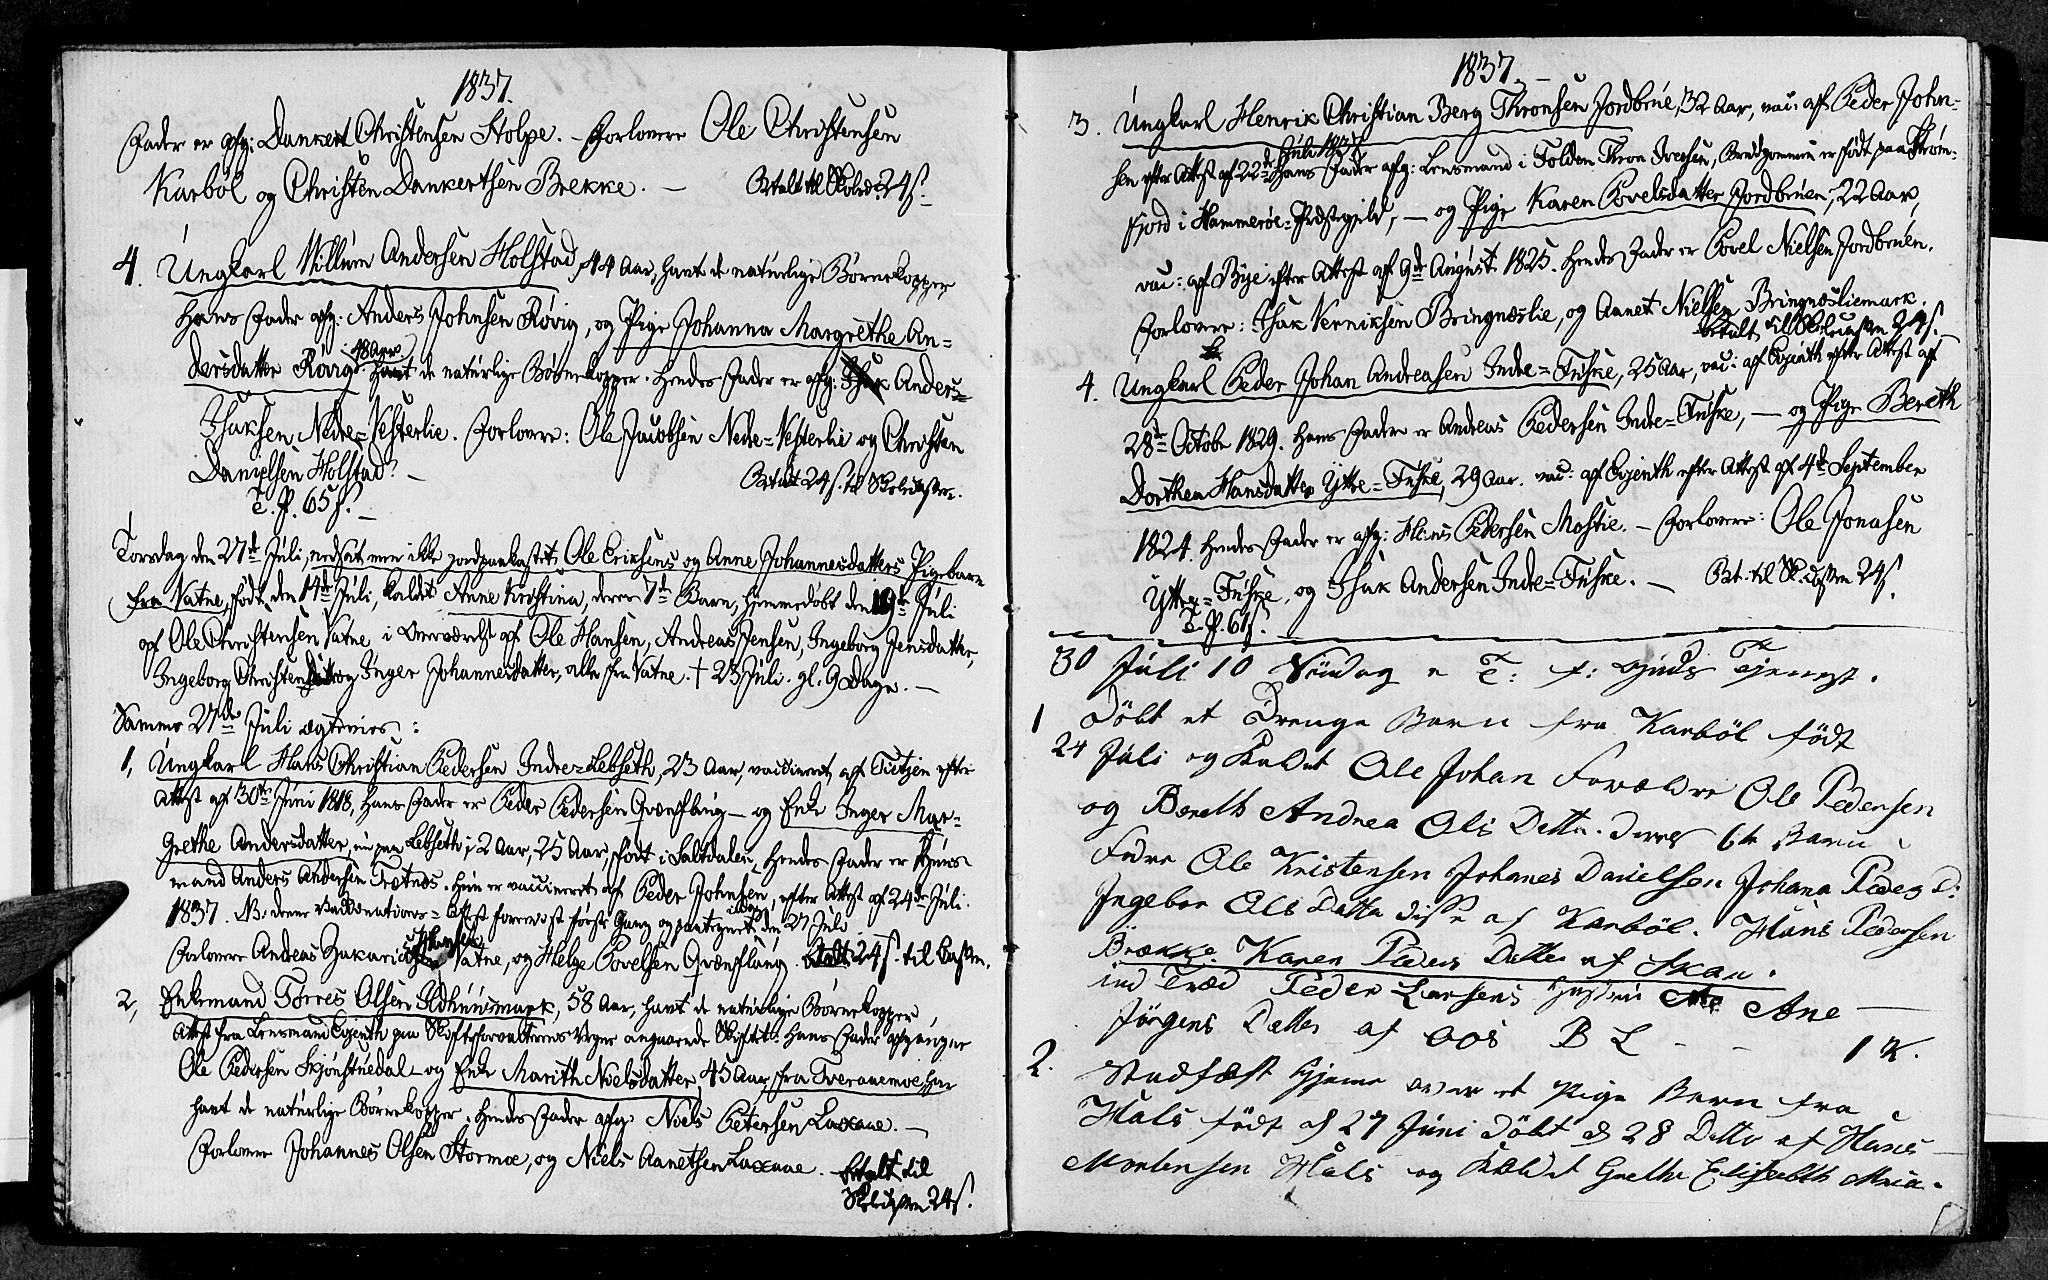 1837.
Fader er afg: Dankert Christensen Stolpe. – Forlovere Ole Christensen
Karböl og Christen Dankertsen Brekke. – Betalt til Skolek: 24 s.
4. Ungkarl Willum Andersen Holstad, 44 Aar, havt de naturlige Børnekopper,
Hans Fader afg: Anders Johnsen Røvig, og Pige Johanna Margrethe An-
dersdatter Røvig 48 Aar. havt de naturlige Børnekopper. Hendes Fader er afg: Anders
Isaksen Nedre-Vesterlie. Forlovere: Ole Jacobsen Nedre-Vesterlie og Christen
Danielsen Holstad. – Betalt 24 s. til Skolekassen.
T. P. 65 s. –
Torsdag den 27de Juli, nedsat men ikke jordpaakastet Ole Eriksens og Anne Johannesdatters Pigebarn
fra Vatne, født den 14de Juli, kaldet Anne Kirstina, deres 7de Barn, hjemmedøbt den 19de Juli
af Ole Christensen Vatne i Overværelse af Ole Hansen, Andreas Jensen, Ingeborg Jensdatter,
Ingeborg Christensdatter og Inger Johannesdatter, alle fra Vatne. † 23 Juli. gl. 9 Dage. –
Samme 27de Juli ægtevies:
1, Ungkarl Hans Christian Pedersen Indre-Lebseth, 23 Aar, vaccineret af Tietzen efter
Attest af 30te Juni 1818, Hans Fader er Peder Pedersen Grænflaug – og Enke Inger Mar-
grethe Andersdatter, nu paa Lebseth i 2 Aar, 25 Aar, født i Saltdalen, Hendes Fader er Huus-
mand Anders Andersen Trætnes. Hun er vaccineret af Peder Johnsen, efter Attest af 24de Juli.
1837. NB. denne Vaccinations-Attest foreviist første Gang og paategnet den 27 Juli
Forlovere Andreas Zakariassen Vatne, og Helge Povelsen Grænflaug. Betalt 24 s. til Cassen.
2, Enkemand Torres Olsen Oldhuusmark, 58 Aar, havt de naturlige Børnekopper,
Attest fra Lensmand Ejenth paa Skifteforvalterens Vegne angaaende Skiftet. Hans Fader afgangne
Ole Pedersen Skjønstuedal – og Enke Marith Nielsdatter, 45 Aar, fra Tveraamoe, har
havt de naturlige Børnekopper. Hendes Fader afg: Niels Petersen Laxaae. –
Forlovere Johannes Olsen Stormoe, og Niels Aanetsen Laxaae. Betalt til
Skolekassen 24 s.
1837. –
3. Ungkarl Henrik Christian Berg Thronsen Jordbrue, 32 Aar, vac: af Peder John-
sen efter Attest af 22de Juli 1837. Hans Fader afg: Lensmand i Folden Thron Iversen, Brudgommen er født paa Strøm-
fjord i Hammerøe-Præstegjeld, – og Pige Karen Povelsdatter Jordbruen, 22 Aar,
vac: af Bye efter Attest af 9de August 1825. Hendes Fader er Povel Nielsen Jordbruen.
Forlovere: Isak Verniksen Bringneslie, og Aanet Nielsen Bringnesliemark.
Betalt til Skolecassen 24 s.
4. Ungkarl Peder Johan Andreasen Indre-Fuske, 25 Aar, vac: af Ejenth efter Attest af
28de Octobr 1829. Hans Fader er Andreas Pedersen Indre-Fuske, – og Pige Bereth
Dorthea Hansdatter Yttre-Fuske, 29 Aar. vac: af Ejenth efter Attest af 4de September
1824. Hendes Fader er afg: Hans Pedersen Mostie. – Forlovere: Ole Jonasen
Yttre-Fuske, og Isak Andersen Indre-Fuske. – Bet: til Sk. Cassen 24 s.
T. P. 61 s.
30 Juli 10 Söndag e T: f: Guds Tjenest.
1 Döbt et Drenge Barn fra Karböl födt
24 Juli og Kaldet Ole Johan Forældre Ole Pedersen
og Bereth Andrea Ols Datter. deres 6te Barn
Fadre Ole Kristensen Johanes Danielsen Johana Peders D:
Ingebor Ols Datter disse af Karböl. Hans Pedersen
Brække. Karen Peders Datter af Skau.
ind Træd Peder Larsens Hustru Ane
Jörgens Datter af Oos B L – – 1 K.
2. Stadfæst Hjeme over et Pige Barn fra
Hals födt d 27 Juni Döbt d 28 Ditto af Hans
Mortensen Hals og Kaldet Grethe Elisabeth Maria.